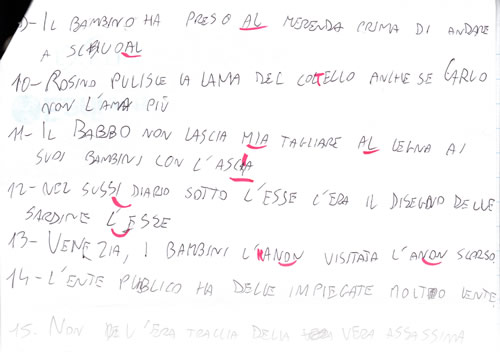 9- IL BAMBINO HA PRESO AL MERENDA PRIMA DI ANDARE
A SCQUOAL
10- ROSINO PULISCE LA LAMA DEL COLTELLO ANCHE SE CARLO
NON L'AMA PIÙ
11- IL BABBO NON LASCIA MIA TAGLIARE AL LEGNA AI
SUOI BAMBINI CON L'ASCIA
12- NEL SUSSI DIARIO SOTTO L'ESSE L'ERA IL DISEGNO DELLE
SARDINE L'ESSE
13- VENEZIA, I BAMBINI L'ANON VISITATA L'ANON SCORSO
14- L'ENTE PUBLICO HA DELLE IMPIEGATE MOLTO LENTE
15. NON L'ERA TRACCIA DELLA VERA ASSASSINA